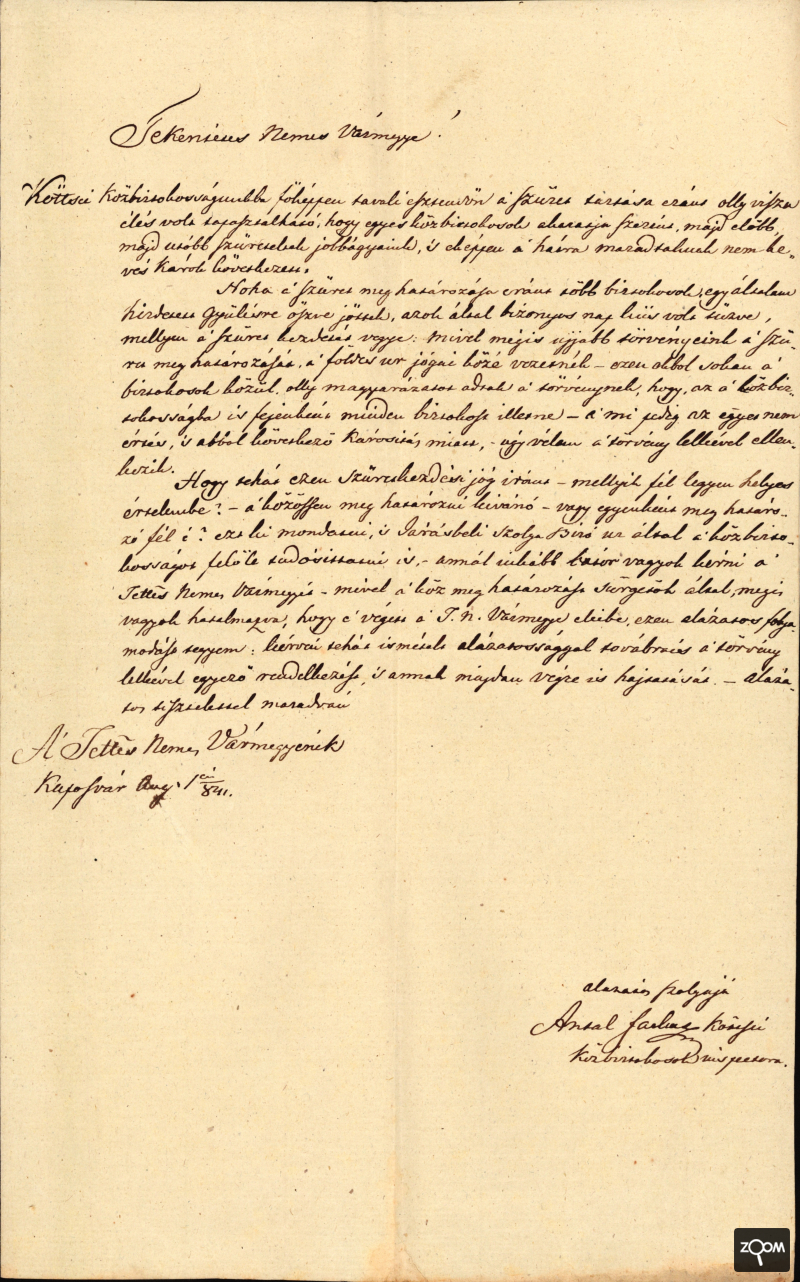 Tekentetes Nemes Vármegye!
Köttsei Közbirtokosságunkba főképpen tavali esztendőn a' szüret tartása eránt olly vissza
élés volt tapasztalható, hogy egyes közbirtokosok akaratja szerént, majd előbb,
majd utóbb szüreteltek jobbágyaink, 's eképpen a' hátra maradtaknak nem ke-
vés károk következett.
Noha a' szüret meg határozása eránt több birtokosok, egy általam
hirdetett gyülésre öszve jöttek, azok által bizonyos nap ki is volt tüzve,
mellyen a' szüret kezdetét vegye: mivel mégis ujjabb törvényeink a' szü-
ret meg határozását, a' földes ur jógai közé vezetnék – ezen okbol sokan a'
birtokosok közül, olly magyarázatot adtak a' törvénynek, hogy, az a' közbir-
tokosságba is fejenként minden birtokost illetne – a' mi pedig az egyet nem
értés, 's abbol következő károsítás miatt, – ugy vélem a' törvény lelkével ellen-
kezik.
Hogy tehát ezen szüretkezdési jóg iránt – mellyik fél legyen helyes
értelembe? – a' közössen meg határozni kivánó – vagy egyenként meg határo-
zó fél é? ezt ki mondatni, 's Járásbeli Szolga Biró ur által a' közbirto-
kosságot felőle tudósíttatni is, – annál inkább bátor vagyok kérni a'
Tettes Nemes Vármegyét – mivel a' köz meg határozást sürgetők által, meg is
vagyok hatalmazva, hogy e' végett a' T. N. Vármegye eleibe, ezen alázatos folya-
modást tegyem: kérvén tehát ismételt alázatossággal továbra is a' törvény
lelkével egyező rendelkezést, 's annak majdan végre is hajtatását. – aláza-
tos tisztelettel maradván
A' Tettes Nemes Vármegyének
Kaposvár Aug. 1én 841.
alázatos szolgája
Antal Köttsei
Közbirtokosok inspectora.
ZOOM